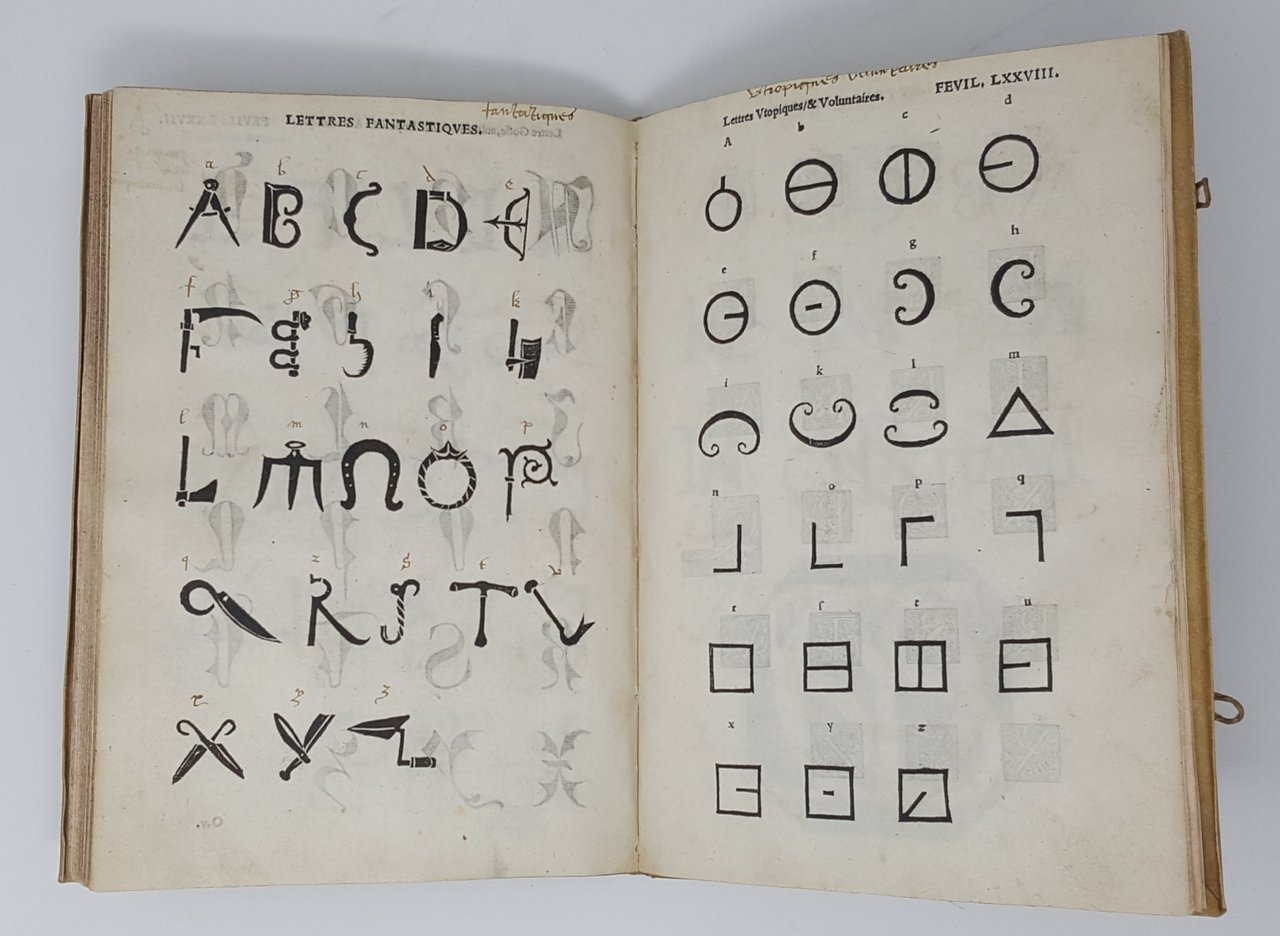 fantastiques
LETTRES FANTASTIQVES.
a b c d e
A B C D E
f g h i k
F G H I K
l m n o p
L M N O P
q r s t v
Q R S T V
x y z
X Y Z
O.v.
Vtopiques Voluntaires
Lettres Vtopiques/& Voluntaires. FEVIL, LXXVIII.
A b c d
e f g h
i k l m
n o p q
r ſ t u
x y z